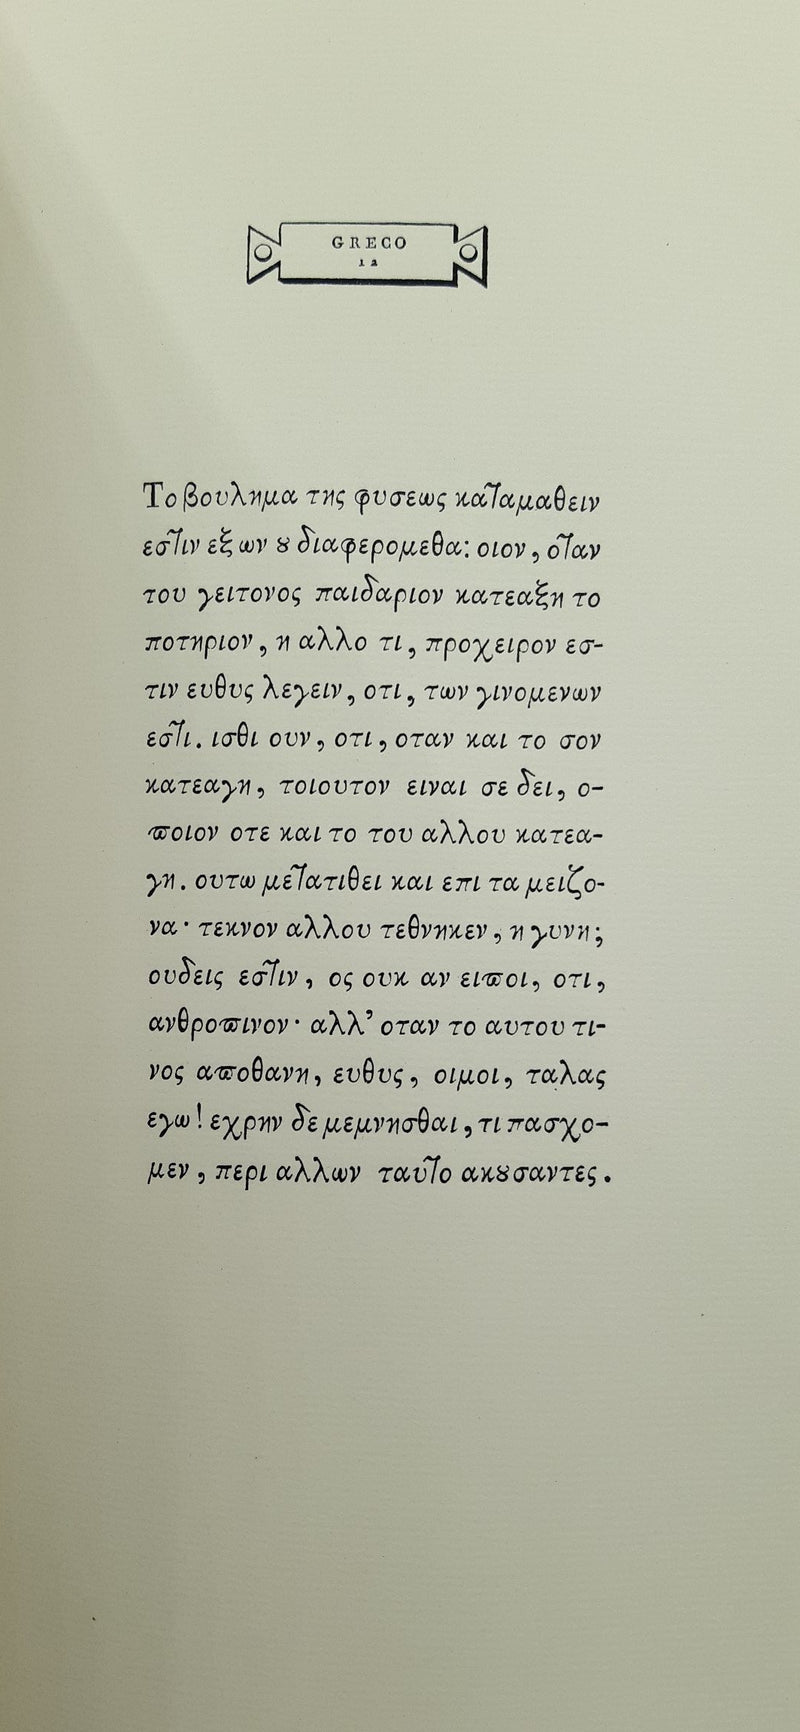 GRECO
12
Το βουλημα της φυσεως καταμαθειν
εστιν εξ ων ȣ διαφερομεθα: οιον, οταν
του γειτονος παιδαριον κατεαξη το
ποτηριον, η αλλο τι, προχειρον εσ-
τιν ευθυς λεγειν, οτι, των γινομενων
εστι. ισθι ουν, οτι, οταν και το σον
κατεαγη, τοιουτον ειναι σε δει, ο-
ϖοιον οτε και το του αλλου κατεα-
γη. ουτω μετατιθει και επι τα μειζο-
να· τεκνον αλλου τεθνηκεν, η γυνη;
ουδεις εστιν, ος ουκ αν ειϖοι, οτι,
ανθροϖινον· αλλ’ οταν το αυτου τι-
νος αϖοθανη, ευθυς, οιμοι, ταλας
εγω! εχρην δε μεμνησθαι, τι πασχο-
μεν, περι αλλων ταυτο ακȣσαντες.